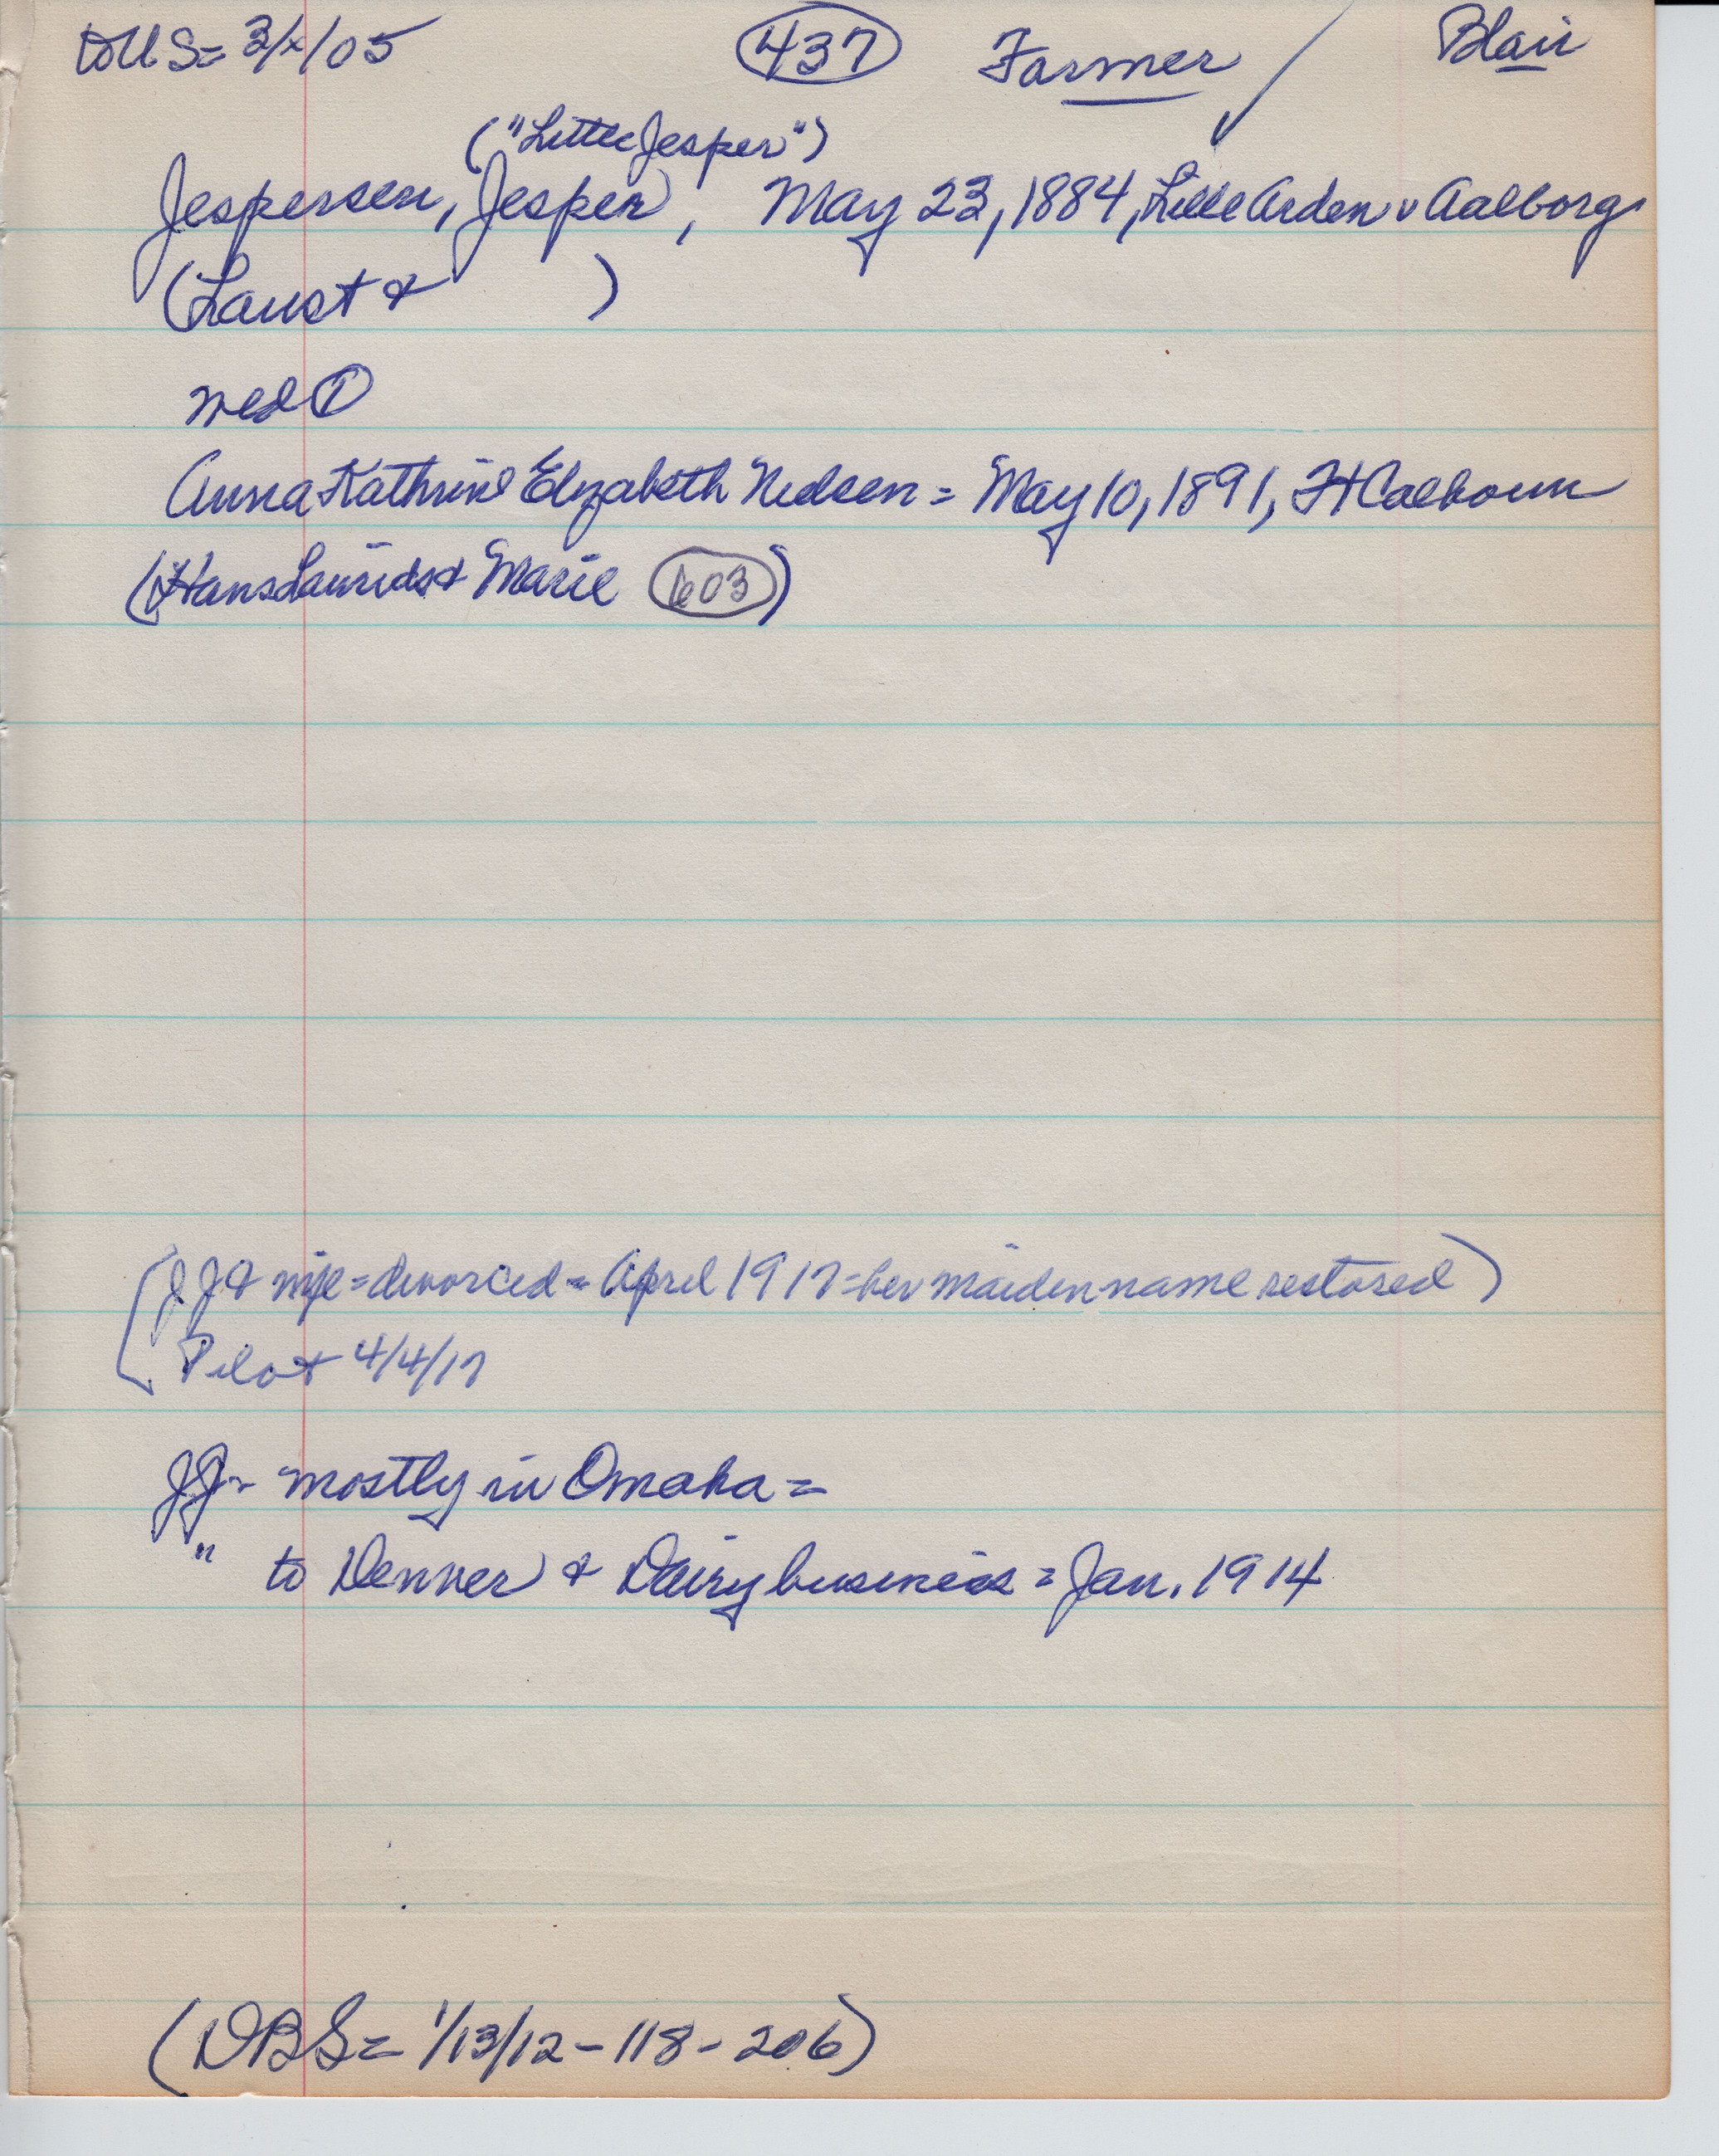 to U S = 3/x/05 437 Farmer Blair
("Little Jesper")
Jespersen, Jesper, May 23, 1884, Lille Arden v Aalborg
(Laust & )
wed 1
Anna Kathrine Elizabeth Nielsen = May 10, 1891, Ft Calhoun
(Hans Laurids & Marie 603)
(JJ & wife = divorced = April 1917 = her maiden name restored)
Pilot 4/4/17
JJ - mostly in Omaha =
" to Denver & Dairy business = Jan. 1914
(DBS = 1/13/12 - 118 - 206)